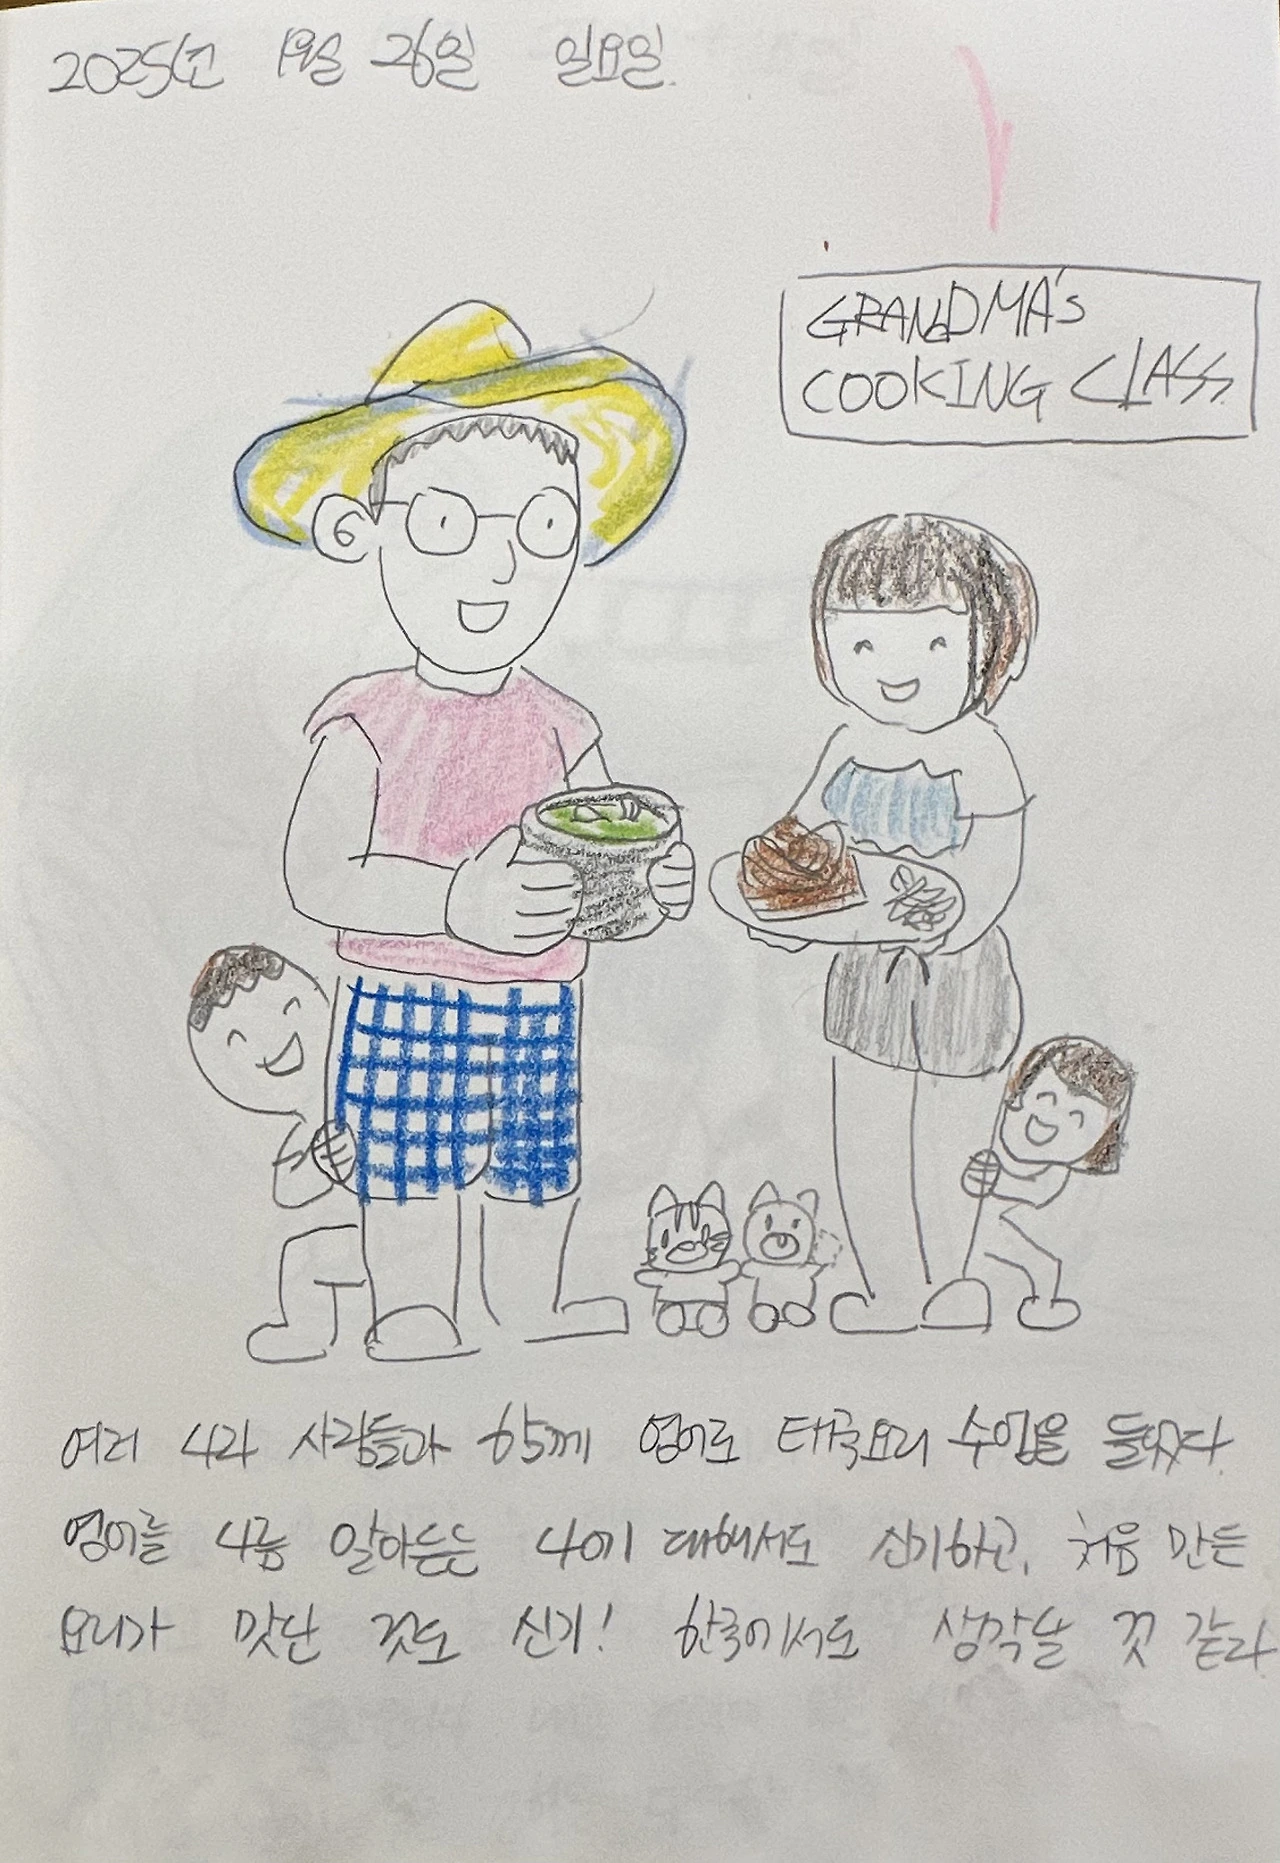 2025년 1월 26일 일요일.
GRANDMA's
COOKING CLASS
여러 나라 사람들과 함께 영어로 태국요리 수업을 들었다
영어를 나름 알아듣는 나에 대해서도 신기하고, 처음 만든
요리가 맛난 것도 신기! 한국에서도 생각날 것 같다